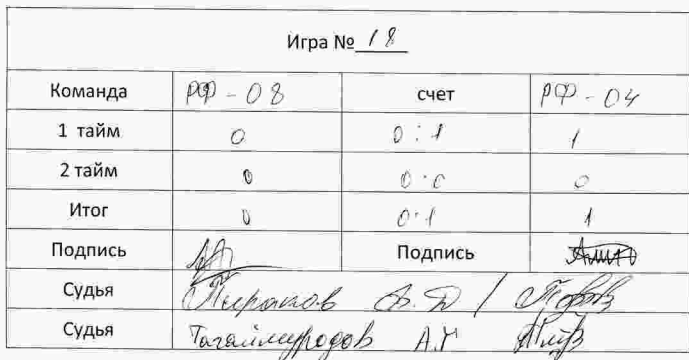 Игра № 18
Команда РФ - 08 счет РФ - 04
1 тайм 0 0 : 1 1
2 тайм 0 0 : 0 0
Итог 0 0 : 1 1
Подпись Подпись
Судья
Судья Тагаймуродов А.